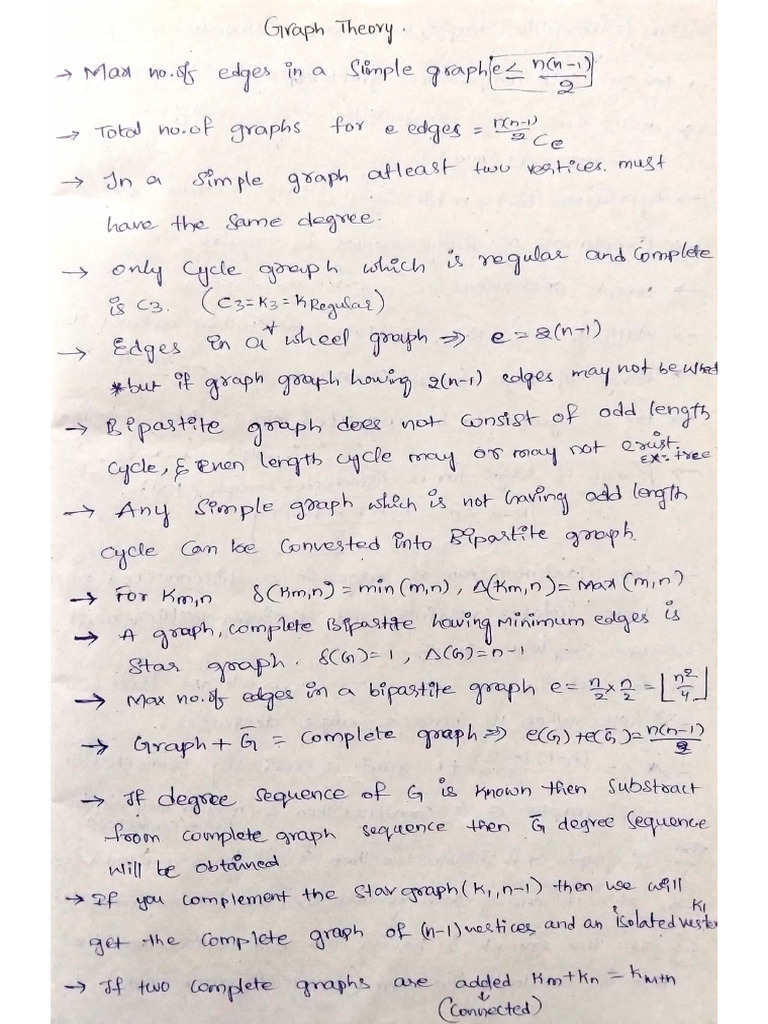 Graph Theory.
→ Max no.of edges in a Simple graph e ≤ n(n-1)/2
→ Total no.of graphs for e edges = n(n-1)/2 Ce
→ In a Simple graph atleast two vertices must
have the same degree.
→ Only Cycle graph which is regular and Complete
is C3. (C3=K3=K Regular)
→ Edges in a wheel graph ⇒ e = 2(n-1)
*but if graph graph having 2(n-1) edges may not be wheel
→ Bipartite graph does not Consist of odd length
cycle, & even length cycle may or may not exist.
Ex:- tree
→ Any Simple graph which is not having odd length
cycle can be Converted into Bipartite graph.
→ For Km,n δ(Km,n) = min(m,n), Δ(Km,n) = Max(m,n)
→ A graph, complete Bipartite having Minimum edges is
Star graph. δ(G)=1, Δ(G)=n-1
→ Max no.of edges in a bipartite graph e = n/2 × n/2 = ⌊n²/4⌋
→ Graph + G̅ = Complete graph ⇒ e(G) + e(G̅) = n(n-1)/2
→ If degree sequence of G is known then Substract
from complete graph sequence then G̅ degree Sequence
will be obtained
→ If you complement the Star graph (K1,n-1) then we will
get the Complete graph of (n-1) vertices and an isolated vertex K1
→ If two complete graphs are added Km+Kn = Km+n
(Connected)